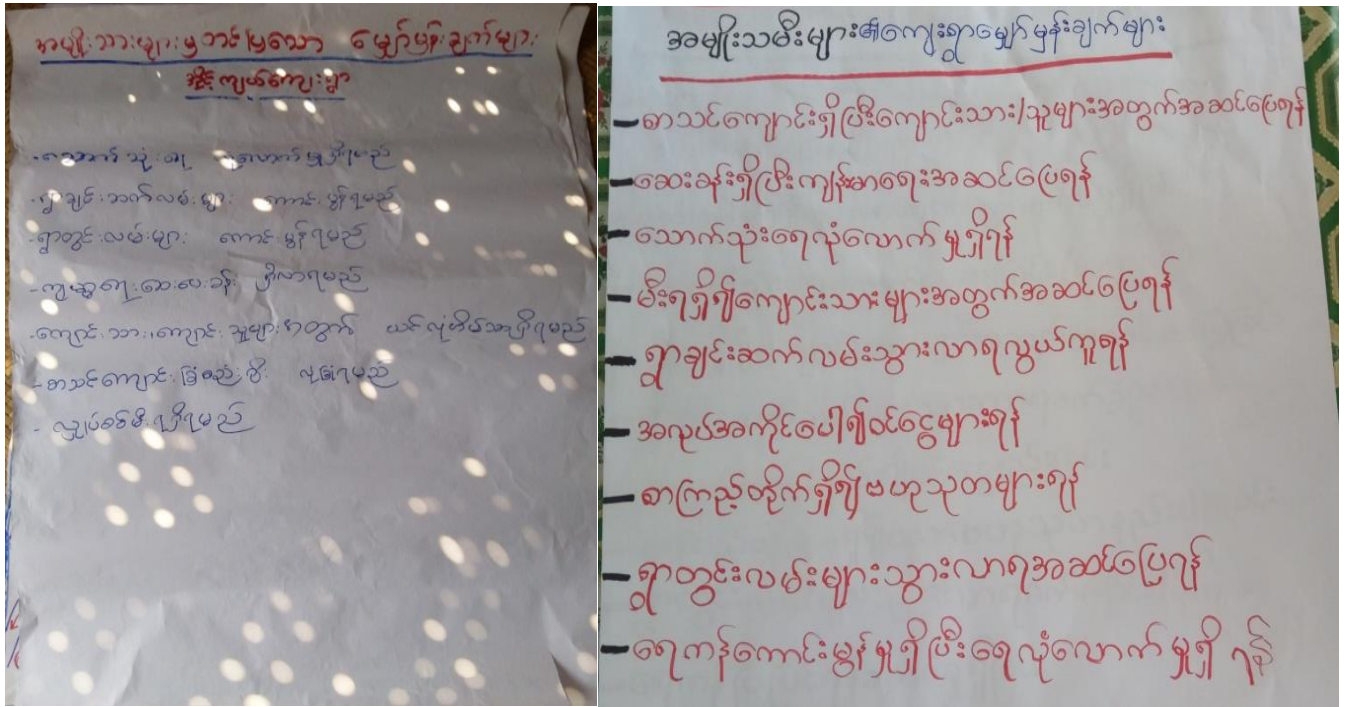 အမျိုးသားများမှ တင်ပြသော မျှော်မှန်းချက်များ
အိုင်ကျယ်ကျေးရွာ
- သောက်သုံးရေ လုံလောက်မှုရှိရမည်
- ရွာချင်းဆက်လမ်းများ ကောင်းမွန်ရမည်
- ရွာတွင်းလမ်းများ ကောင်းမွန်ရမည်
- ကျန်းမာရေးဆေးပေးခန်း ရှိလာရမည်
- ကျောင်းသား၊ကျောင်းသူများအတွက် ယင်လုံအိမ်သာရှိရမည်
- စာသင်ကျောင်းခြံစည်းရိုး လုံခြုံရမည်
- လျှပ်စစ်မီးရရှိရမည်
အမျိုးသမီးများ၏ကျေးရွာမျှော်မှန်းချက်များ
- စာသင်ကျောင်းရှိပြီးကျောင်းသား/သူများအတွက်အဆင်ပြေရန်
- ဆေးခန်းရှိပြီးကျန်းမာရေးအဆင်ပြေရန်
- သောက်သုံးရေလုံလောက်မှုရှိရန်
- မီးရရှိ၍ကျောင်းသားများအတွက်အဆင်ပြေရန်
- ရွာချင်းဆက်လမ်းသွားလာရလွယ်ကူရန်
- အလုပ်အကိုင်ပေါ၍ဝင်ငွေများရန်
- စာကြည့်တိုက်ရှိ၍ဗဟုသုတများရန်
- ရွာတွင်းလမ်းများသွားလာရအဆင်ပြေရန်
- ရေကန်ကောင်းမွန်မှုရှိပြီးရေလုံလောက်မှုရှိ ရန်